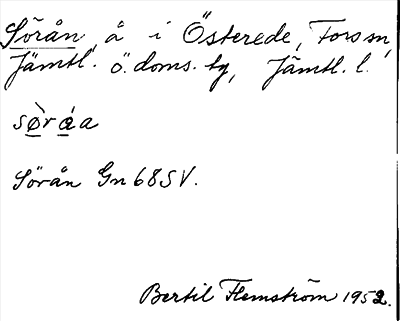 Sörån å i Österede, Fors sn,
Jämtl. ö. doms. tg, Jämtl. l.
sø̀råa
Sörån Gn 68 SV.
Bertil Flemström 1952.